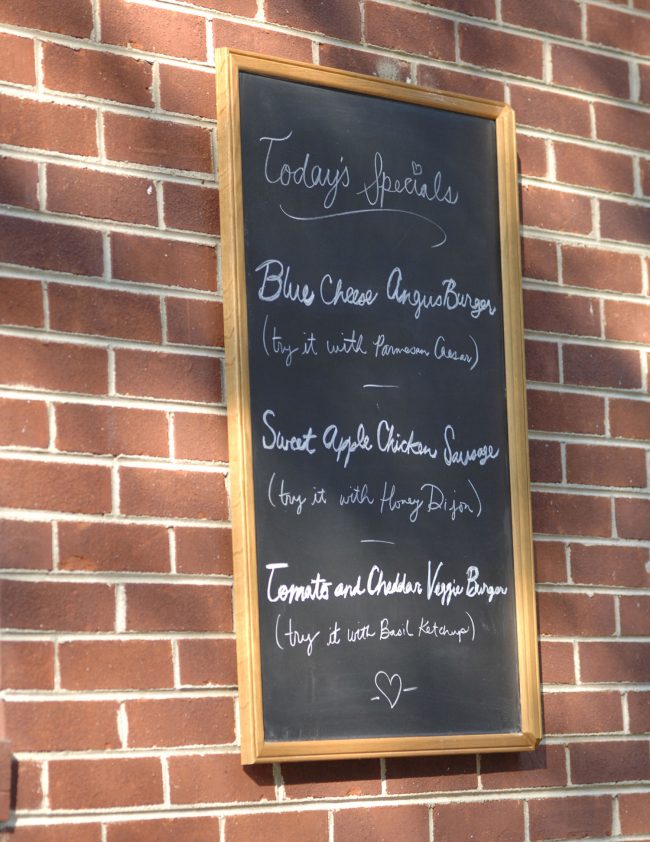 Today's Specials
Blue Cheese Angus Burger
(try it with Parmesan Caesar)
Sweet Apple Chicken Sausage
(try it with Honey Dijon)
Tomato and Cheddar Veggie Burger
(try it with Basil Ketchup)